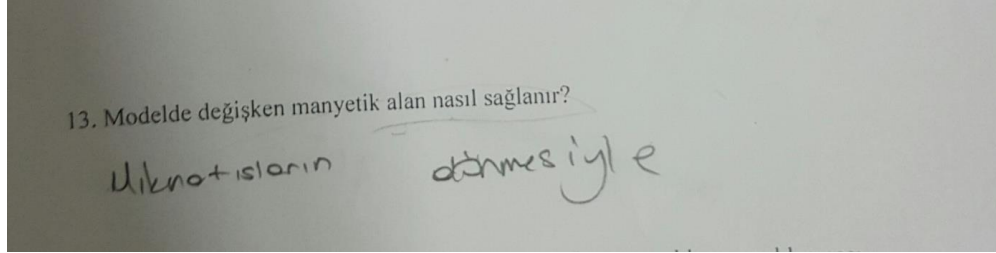 13. Modelde değişken manyetik alan nasıl sağlanır?
Mıknatısların dönmesiyle